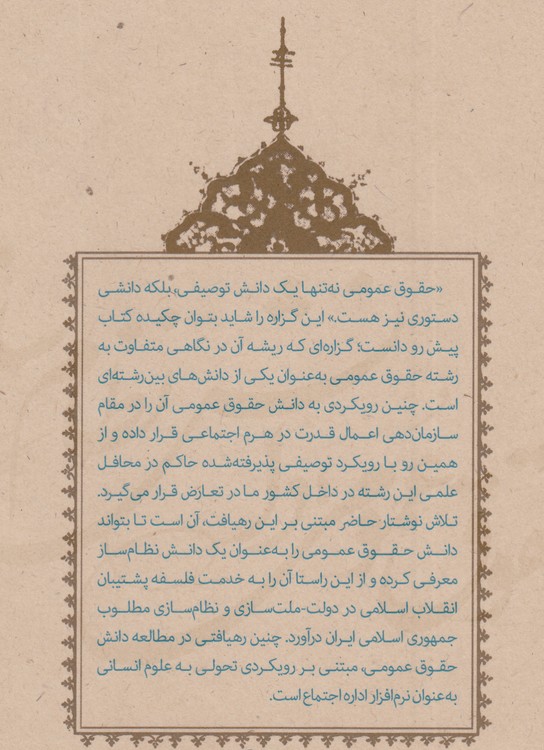 «حقوق عمومی نه‌تنها یک دانش توصیفی، بلکه دانشی
دستوری نیز هست.» این گزاره را شاید بتوان چکیده کتاب
پیش رو دانست؛ گزاره‌ای که ریشه آن در نگاهی متفاوت به
رشته حقوق عمومی به‌عنوان یکی از دانش‌های بین‌رشته‌ای
است. چنین رویکردی به دانش حقوق عمومی آن را در مقام
سازمان‌دهی اعمال قدرت در هرم اجتماعی قرار داده و از
همین رو با رویکرد توصیفی پذیرفته‌شده حاکم در محافل
علمی این رشته در داخل کشور ما در تعارض قرار می‌گیرد.
تلاش نوشتار حاضر مبتنی بر این رهیافت، آن است تا بتواند
دانش حقوق عمومی را به‌عنوان یک دانش نظام‌ساز
معرفی کرده و از این راستا آن را به خدمت فلسفه پشتیبان
انقلاب اسلامی در دولت-ملت‌سازی و نظام‌سازی مطلوب
جمهوری اسلامی ایران درآورد. چنین رهیافتی در مطالعه دانش
حقوق عمومی، مبتنی بر رویکردی تحولی به علوم انسانی
به‌عنوان نرم‌افزار اداره اجتماع است.